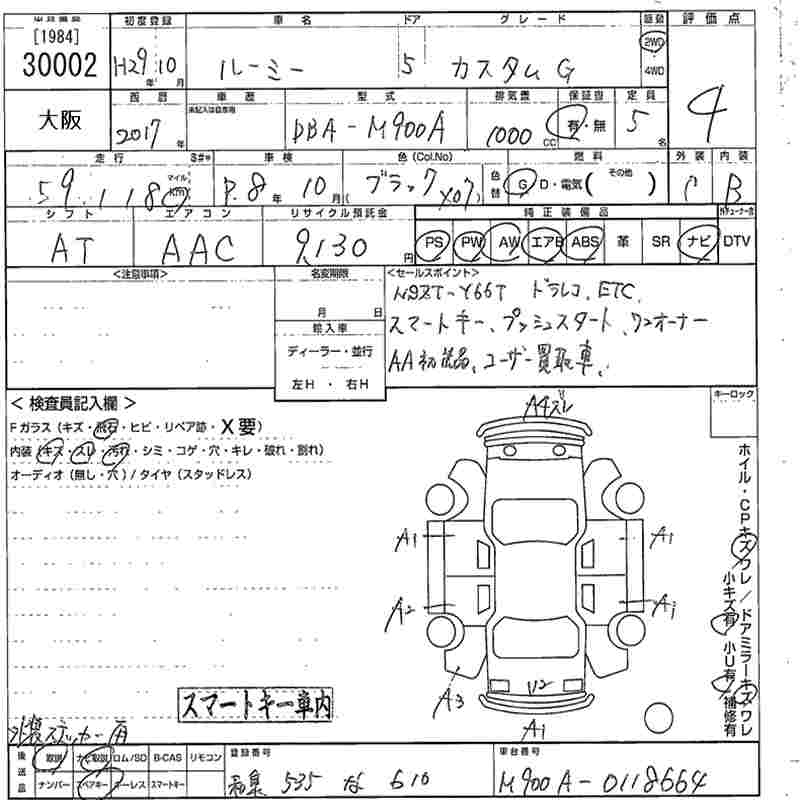 [1984]
30002
初度登録 車名 ドア グレード 駆動 評価点
H29年10月 ルーミー 5 カスタムG 2WD 4WD 4
大阪
西暦 車歴 型式 排気量 保証書 定員
2017年 未記入は自家用 DBA-M900A 1000cc 有・無 5名
走行 車検 色(Col.No) 色替 燃料 外装 内装
59,118 マイル Km R.8年10月 ブラック(X07) G D・電気( その他 ) C B
シフト エアコン リサイクル預託金 純正装備品
AT AAC 9,130円 PS PW AW エアB ABS 革 SR ナビ DTV
<注意事項> 名変期限 <セールスポイント>
月 日
NSZT-Y66T ドラレコ、ETC、
スマートキー、プッシュスタート、ワンオーナー
AA初出品、ユーザー買取車、
輸入車
ディーラー・並行
左H・右H
キーロック
< 検査員記入欄 >
Fガラス(キズ・飛石・ヒビ・リペア跡・X要)
内装(キズ・スレ・汚れ・シミ・コゲ・穴・キレ・破れ・割れ)
オーディオ(無し・穴)/タイヤ(スタッドレス)
A4ズレ
A1 A1
A2 A1
A3
U2
A1
ホイル・CPキズワレ/ドアミラーキズワレ
小キズ有 小U有 補修有
スマートキー車内
外装ステッカー有
後送品 取説 ナビ取説 ロム/SD B-CAS リモコン
ナンバー スペアキー キーレス スマートキー
登録番号 車台番号
535 な 610 M900A-0118664